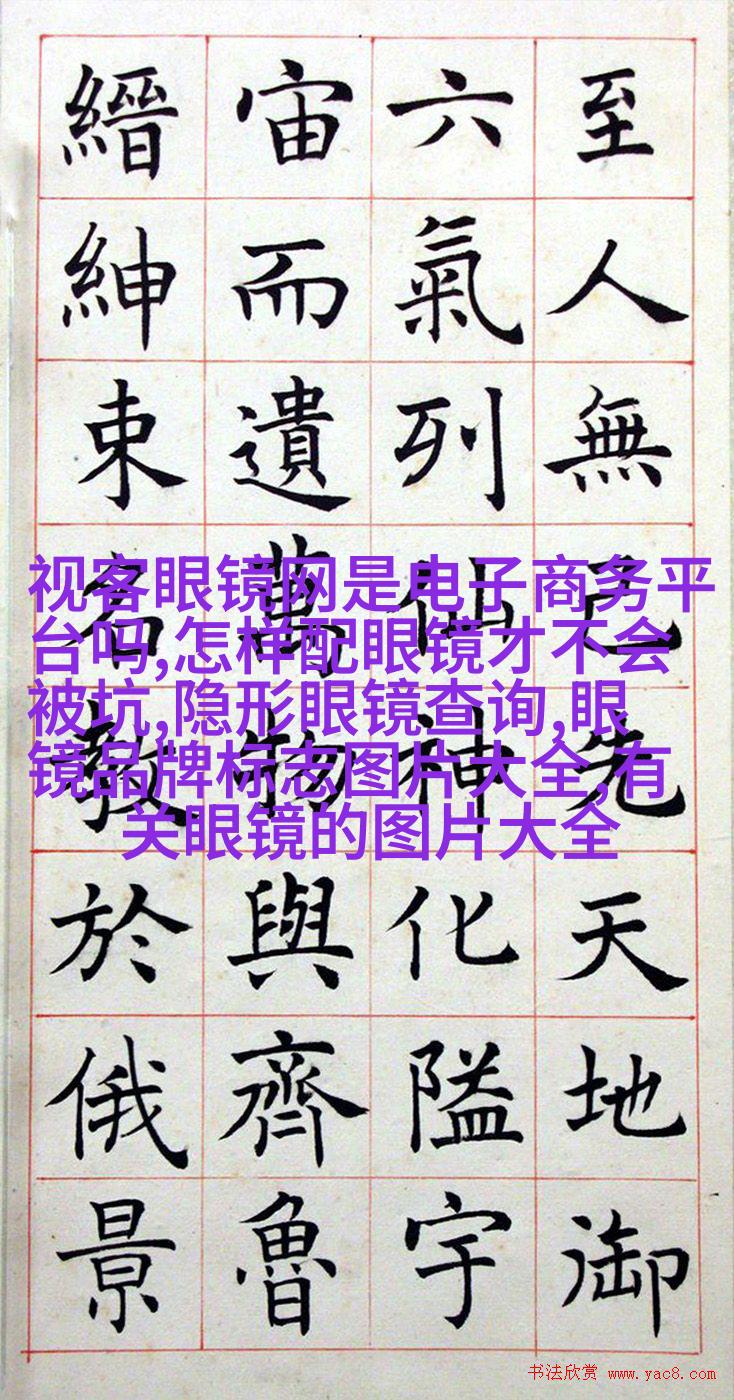 至人無己先天地御
六氣列仙神化隘宇
宙而遺萬物與齊魯
縉紳束名教於俄景
视客眼镜网是电子商务平
台吗,怎样配眼镜才不会
被坑,隐形眼镜查询,眼
镜品牌标志图片大全,有
关眼镜的图片大全
书法欣赏 www.yac8.com